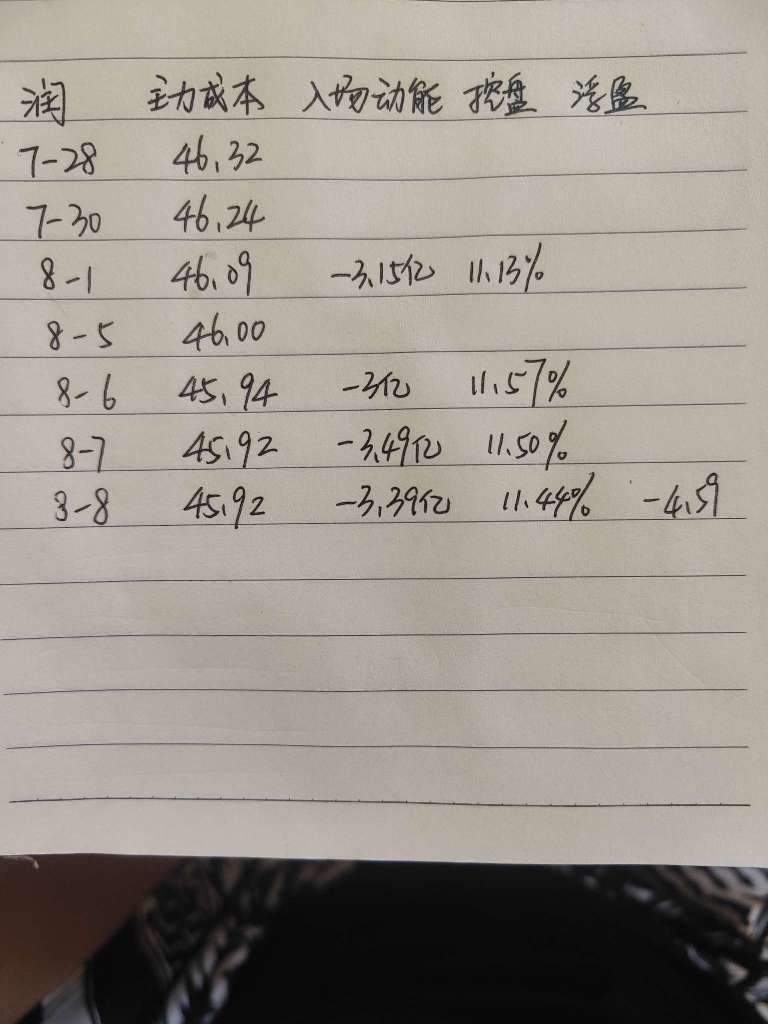 润 主力成本 入场动能 控盘 浮盈
7-28 46.32
7-30 46.24
8-1 46.09 -3.15亿 11.13%
8-5 46.00
8-6 45.94 -3亿 11.57%
8-7 45.92 -3.49亿 11.50%
8-8 45.92 -3.39亿 11.44% -4.59